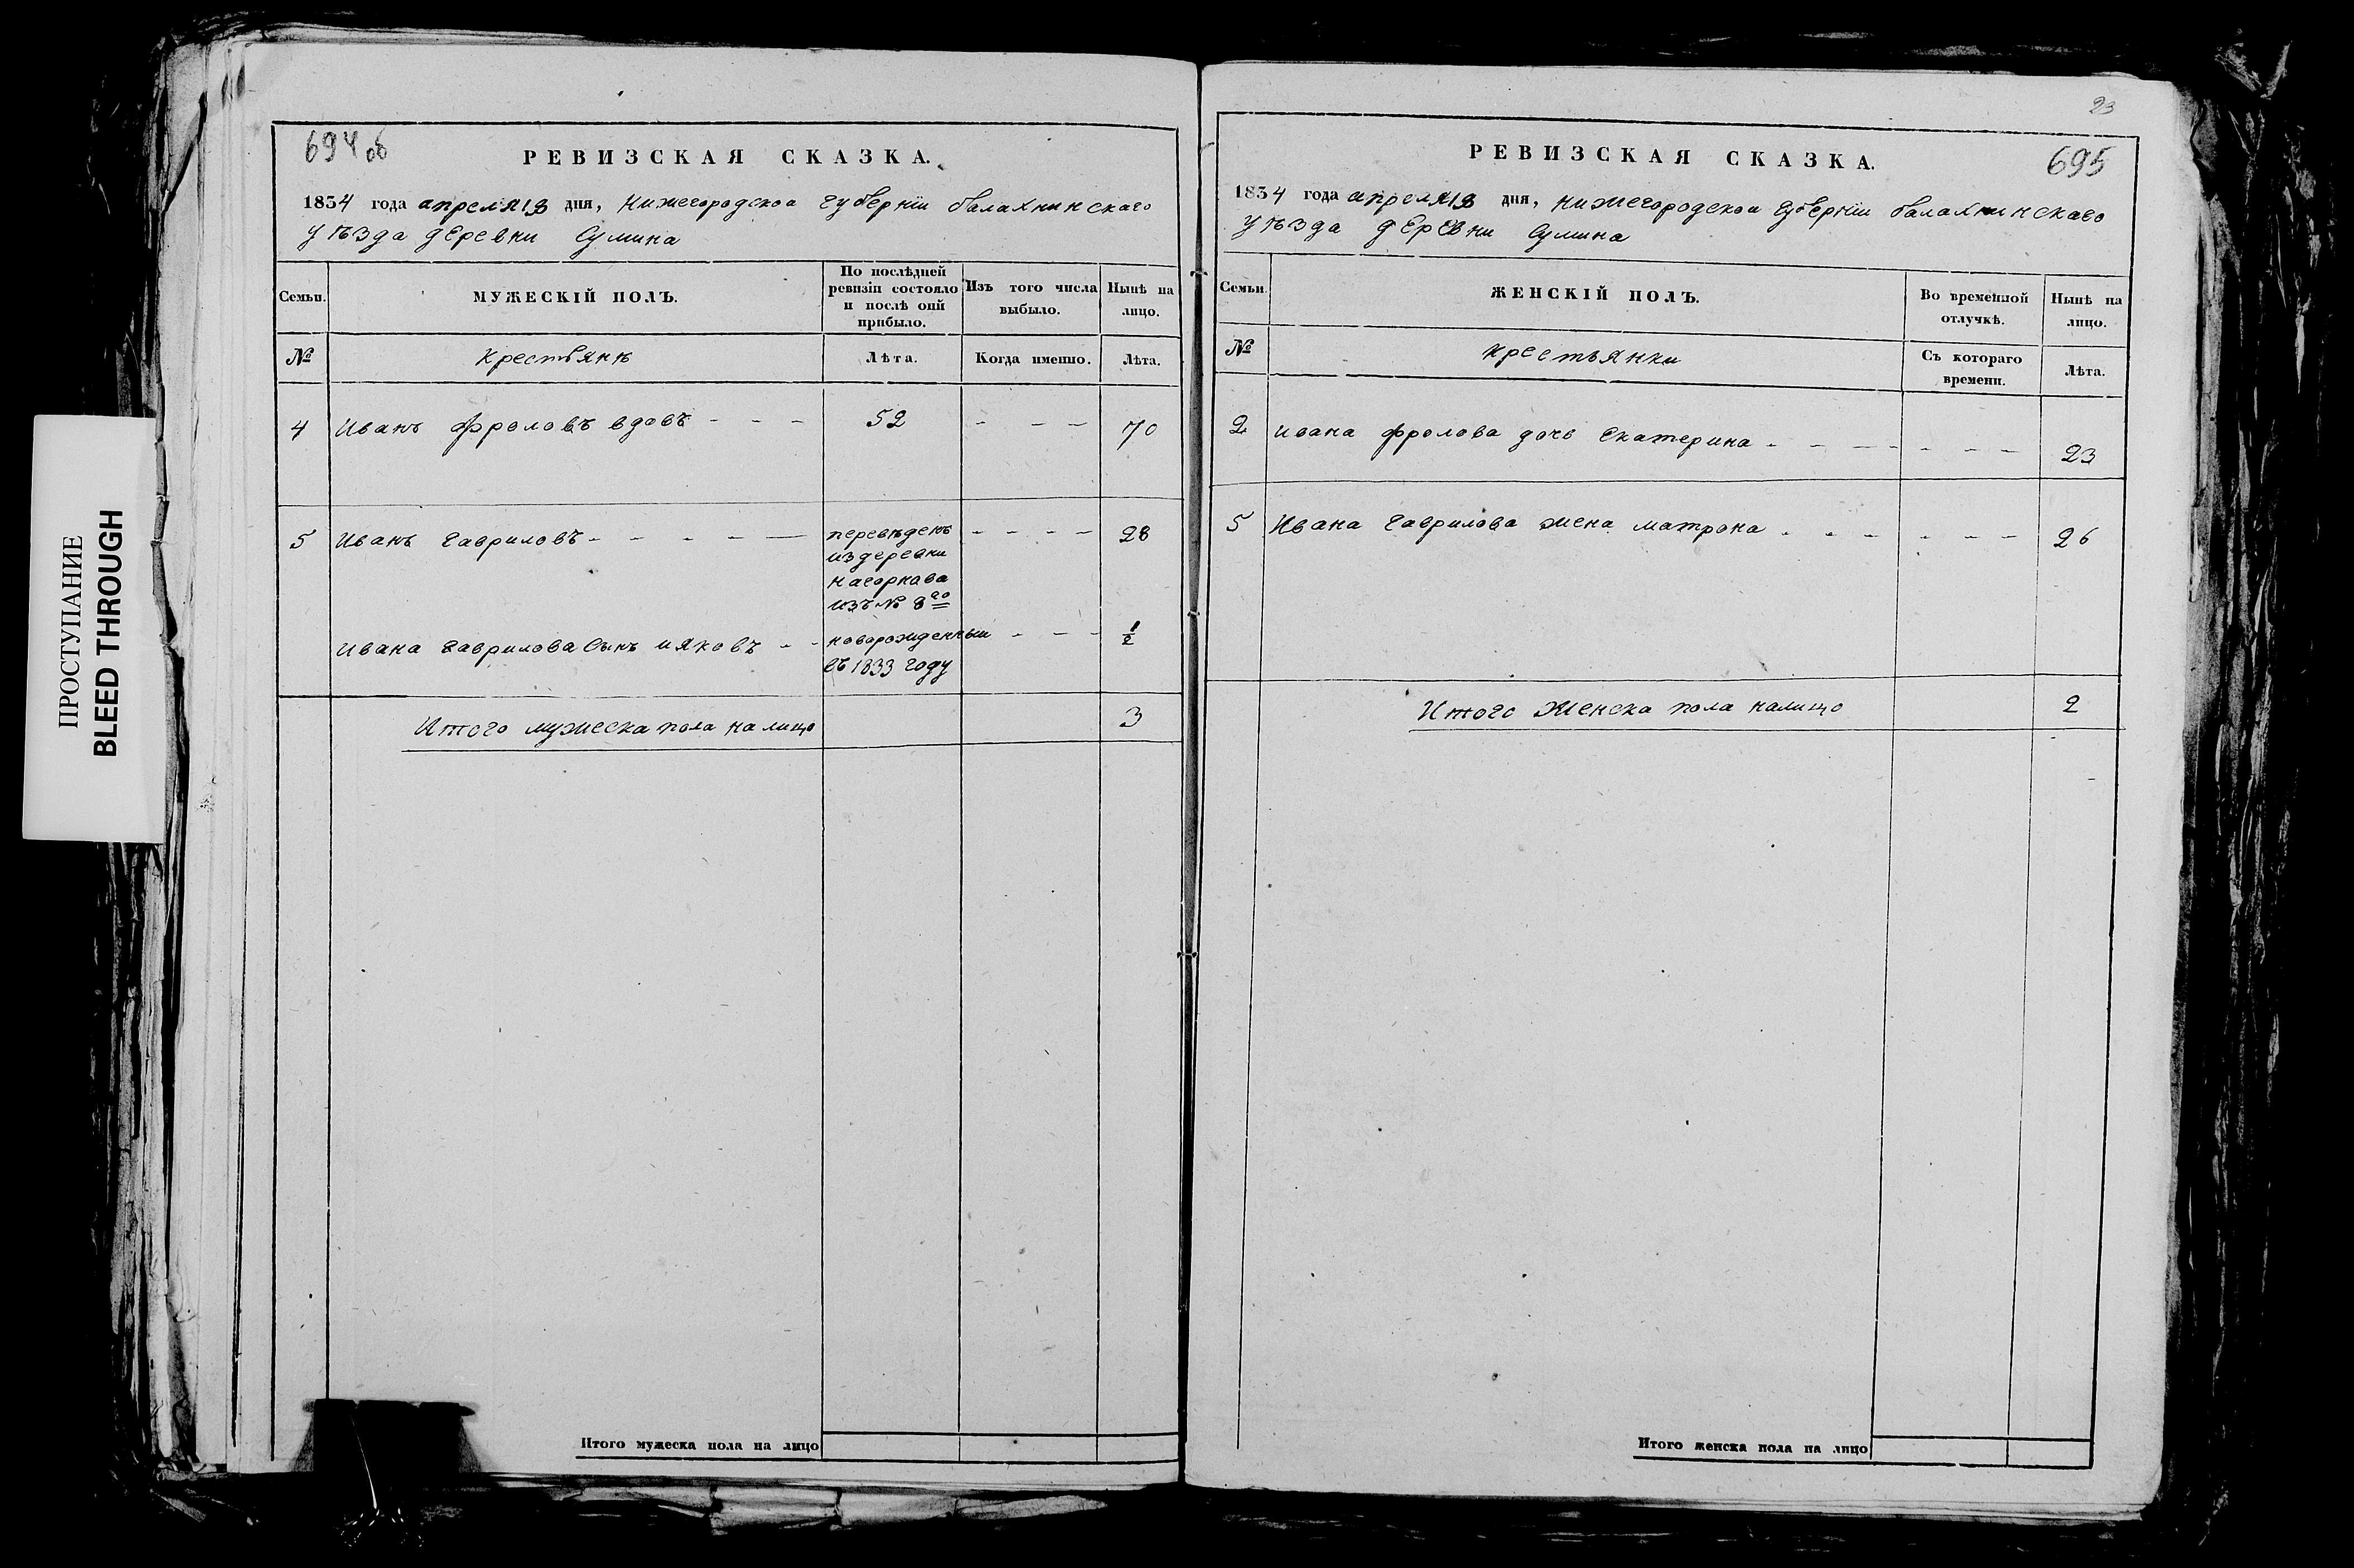 ПРОСТУПАНИЕ
BLEED THROUGH
694 об
РЕВИЗСКАЯ СКАЗКА.
1834 года апреля 18 дня, нижегородскоа губернiи балахнинскаго
уѣзда деревни Сумина
Семьи.
МУЖЕСКІЙ ПОЛЪ.
По послѣдней ревизіи состояло и послѣ оній прибыло.
Изъ того числа выбыло.
Нынѣ на лицо.
№ крестьянѣ Лѣта. Когда именно. Лѣта.
4 Иванъ фроловъ вдовъ - - - 52 - - - 70
5 Иванъ гавриловъ - - - - - переведенъ - - - - 28
из деревни
нагорнава
изъ № 8го
Ивана гаврилова сынъ иаковъ - - новорожденный - - - 1/2
въ 1833 году
Итого мужеска пола на лицо 3
Итого мужеска пола на лицо
23
695
РЕВИЗСКАЯ СКАЗКА.
1834 года апреля 18 дня, нижегородскоа губернiи балахнинскаго
уѣзда деревни Сумина
Семьи.
ЖЕНСКІЙ ПОЛЪ.
Во временной отлучкѣ.
Нынѣ на лицо.
№ крестьянки Съ котораго времени. Лѣта.
2 ивана фролова дочь екатерина - - - - - - - 23
5 Ивана гаврилова жена матрона - - - - - - 26
Итого женска пола налицо 2
Итого женска пола на лицо